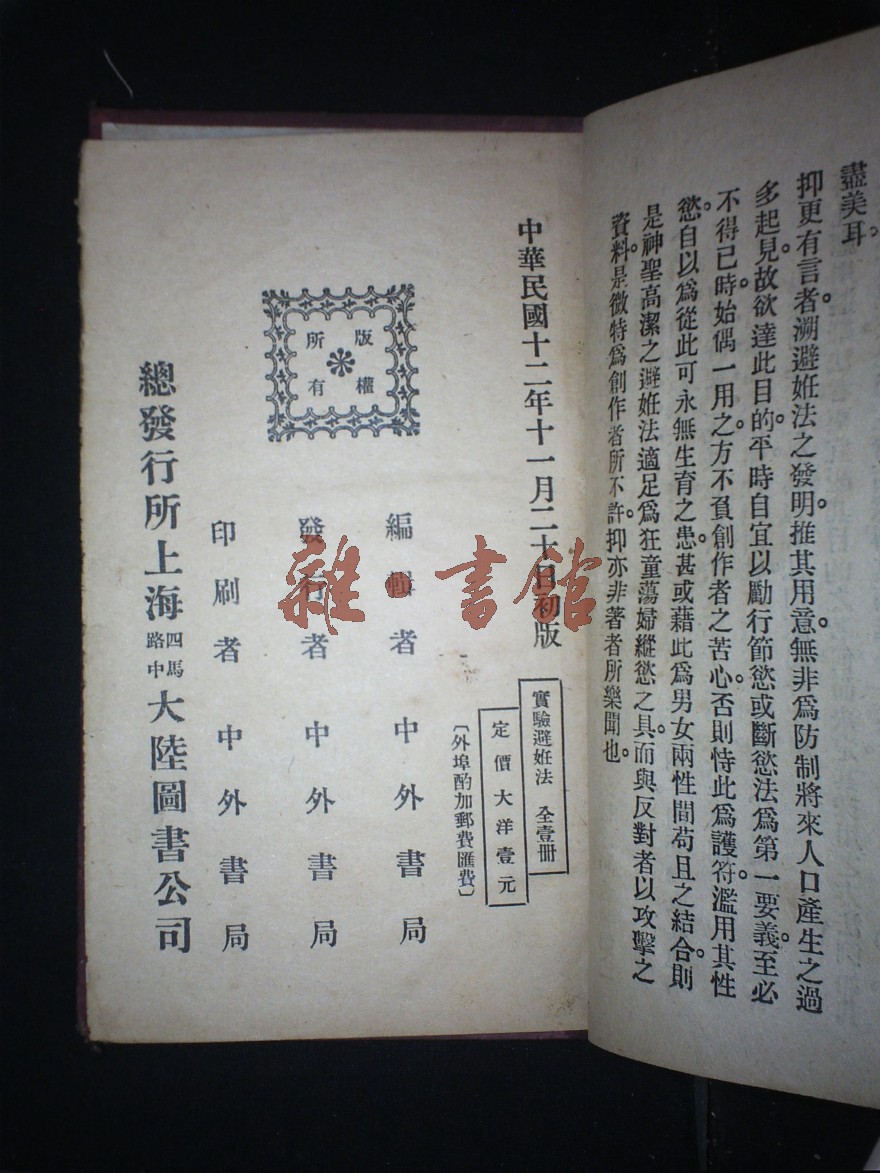 盡美耳。
抑更有言者。溯避姙法之發明。推其用意。無非爲防制將來人口產生之過
多起見。故欲達此目的。平時自宜以勵行節慾或斷慾法爲第一要義。至必
不得已時。始偶一用之。方不負創作者之苦心。否則恃此爲護符。濫用其性
慾。自以爲從此可永無生育之患。甚或藉此爲男女兩性間苟且之結合。則
是神聖高潔之避姙法。適足爲狂童蕩婦縱慾之具。而與反對者以攻擊之
資料。是微特爲創作者所不許。抑亦非著者所樂聞也。
中華民國十二年十一月二十日初版
實驗避姙法 全壹冊
定價大洋壹元
〔外埠酌加郵費匯費〕
編輯者 中外書局
發行者 中外書局
印刷者 中外書局
版權
所有
總發行所上海四馬路中大陸圖書公司
雜·書館